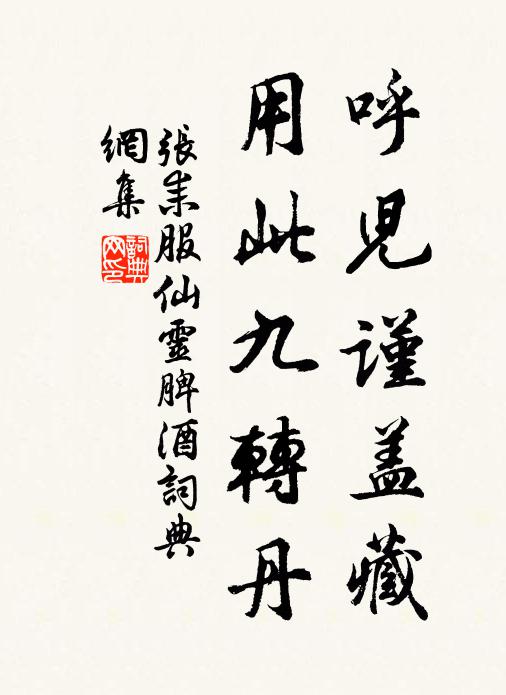 呼児謹盖藏
用此九轉丹
張耒服仙靈脾酒詞典
網集
詞典
网印